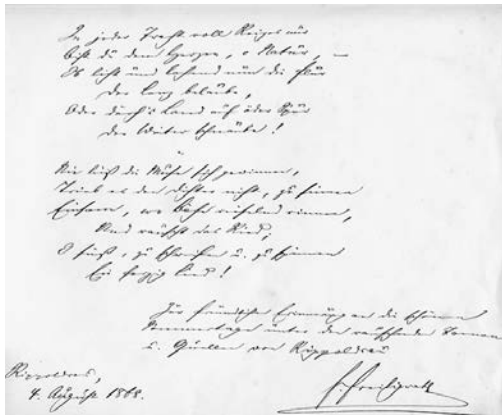 In jeder Tracht voll Reizes nur
Bist du dem Herzen, o Natur, —
Ob licht und labend nun die Flur
Der Lenz belaube,
Oder durch's Land auf öder Spur
Der Winter schnaube!
Nie ließ die Muse sich gewinnen,
Trieb es den Dichter nicht, zu sinnen
Einsam, wo Bäche rieselnd rinnen,
Und rauscht das Ried;
O süß, zu schweifen u. zu spinnen
Ein herzig Lied!
Zur freundlichen Erinnerung an die schönen
Sommertage unter den rauschenden Tannen
u. Quellen von Rippoldsau
Rippoldsau,
4. August 1868.
F. Freiligrath